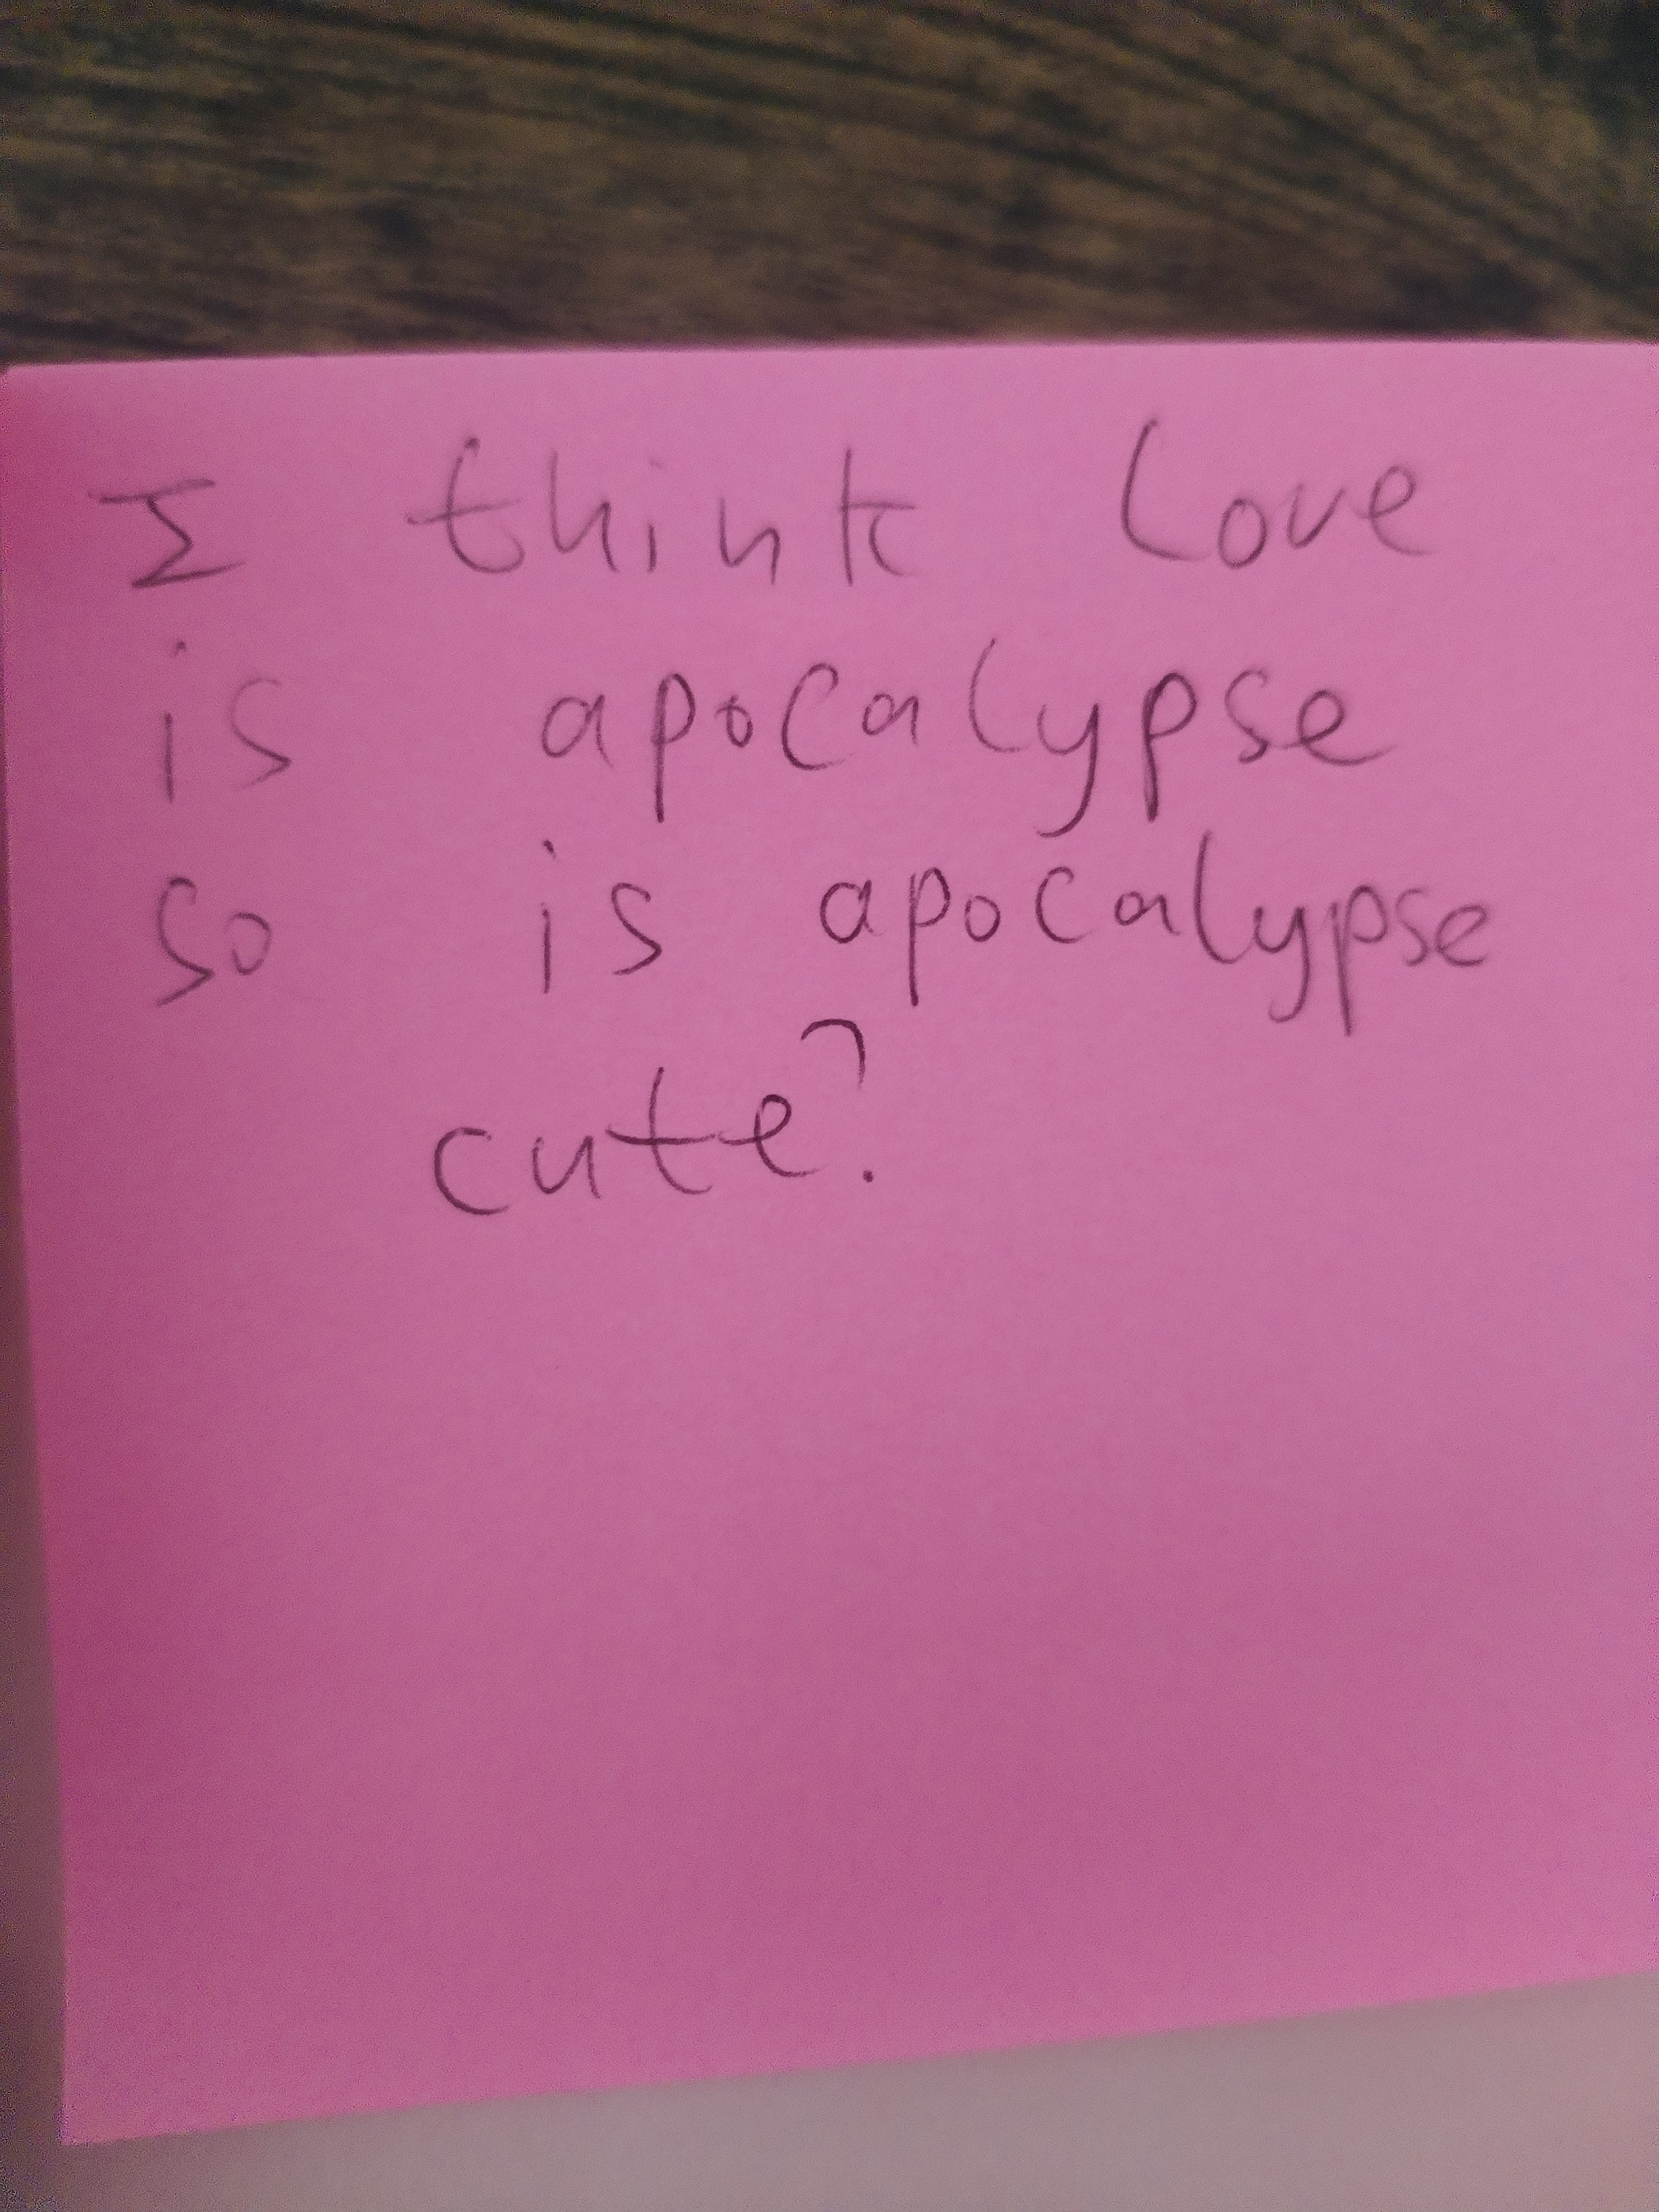 I think love
is apocalypse
so is apocalypse
cute?